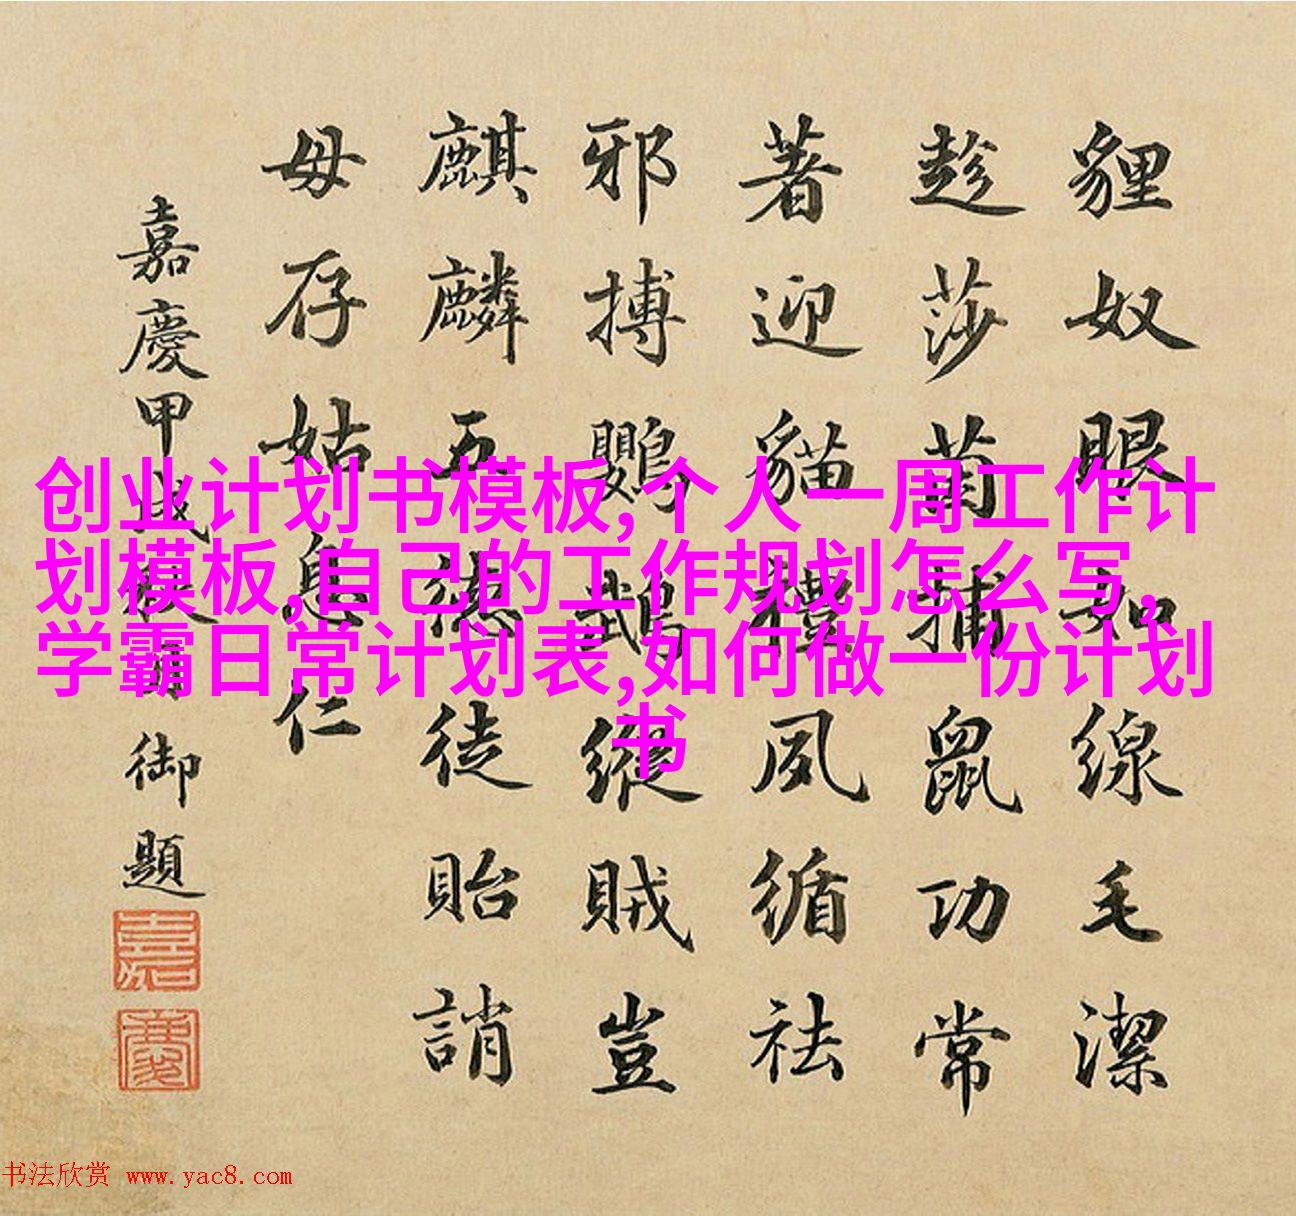 貍奴眼如線毛潔
趁莎捕鼠功常
著迎貓禮夙循祛
邪搏鸚鵡縱賊豈
麒麟五德徒貽誚
毋存姑息仁
嘉慶甲戌御題
嘉
慶
创业计划书模板,个人一周工作计
划模板,自己的工作规划怎么写,
学霸日常计划表,如何做一份计划
书
书法欣赏 www.yac8.com